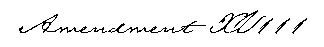 Amendment XVIII